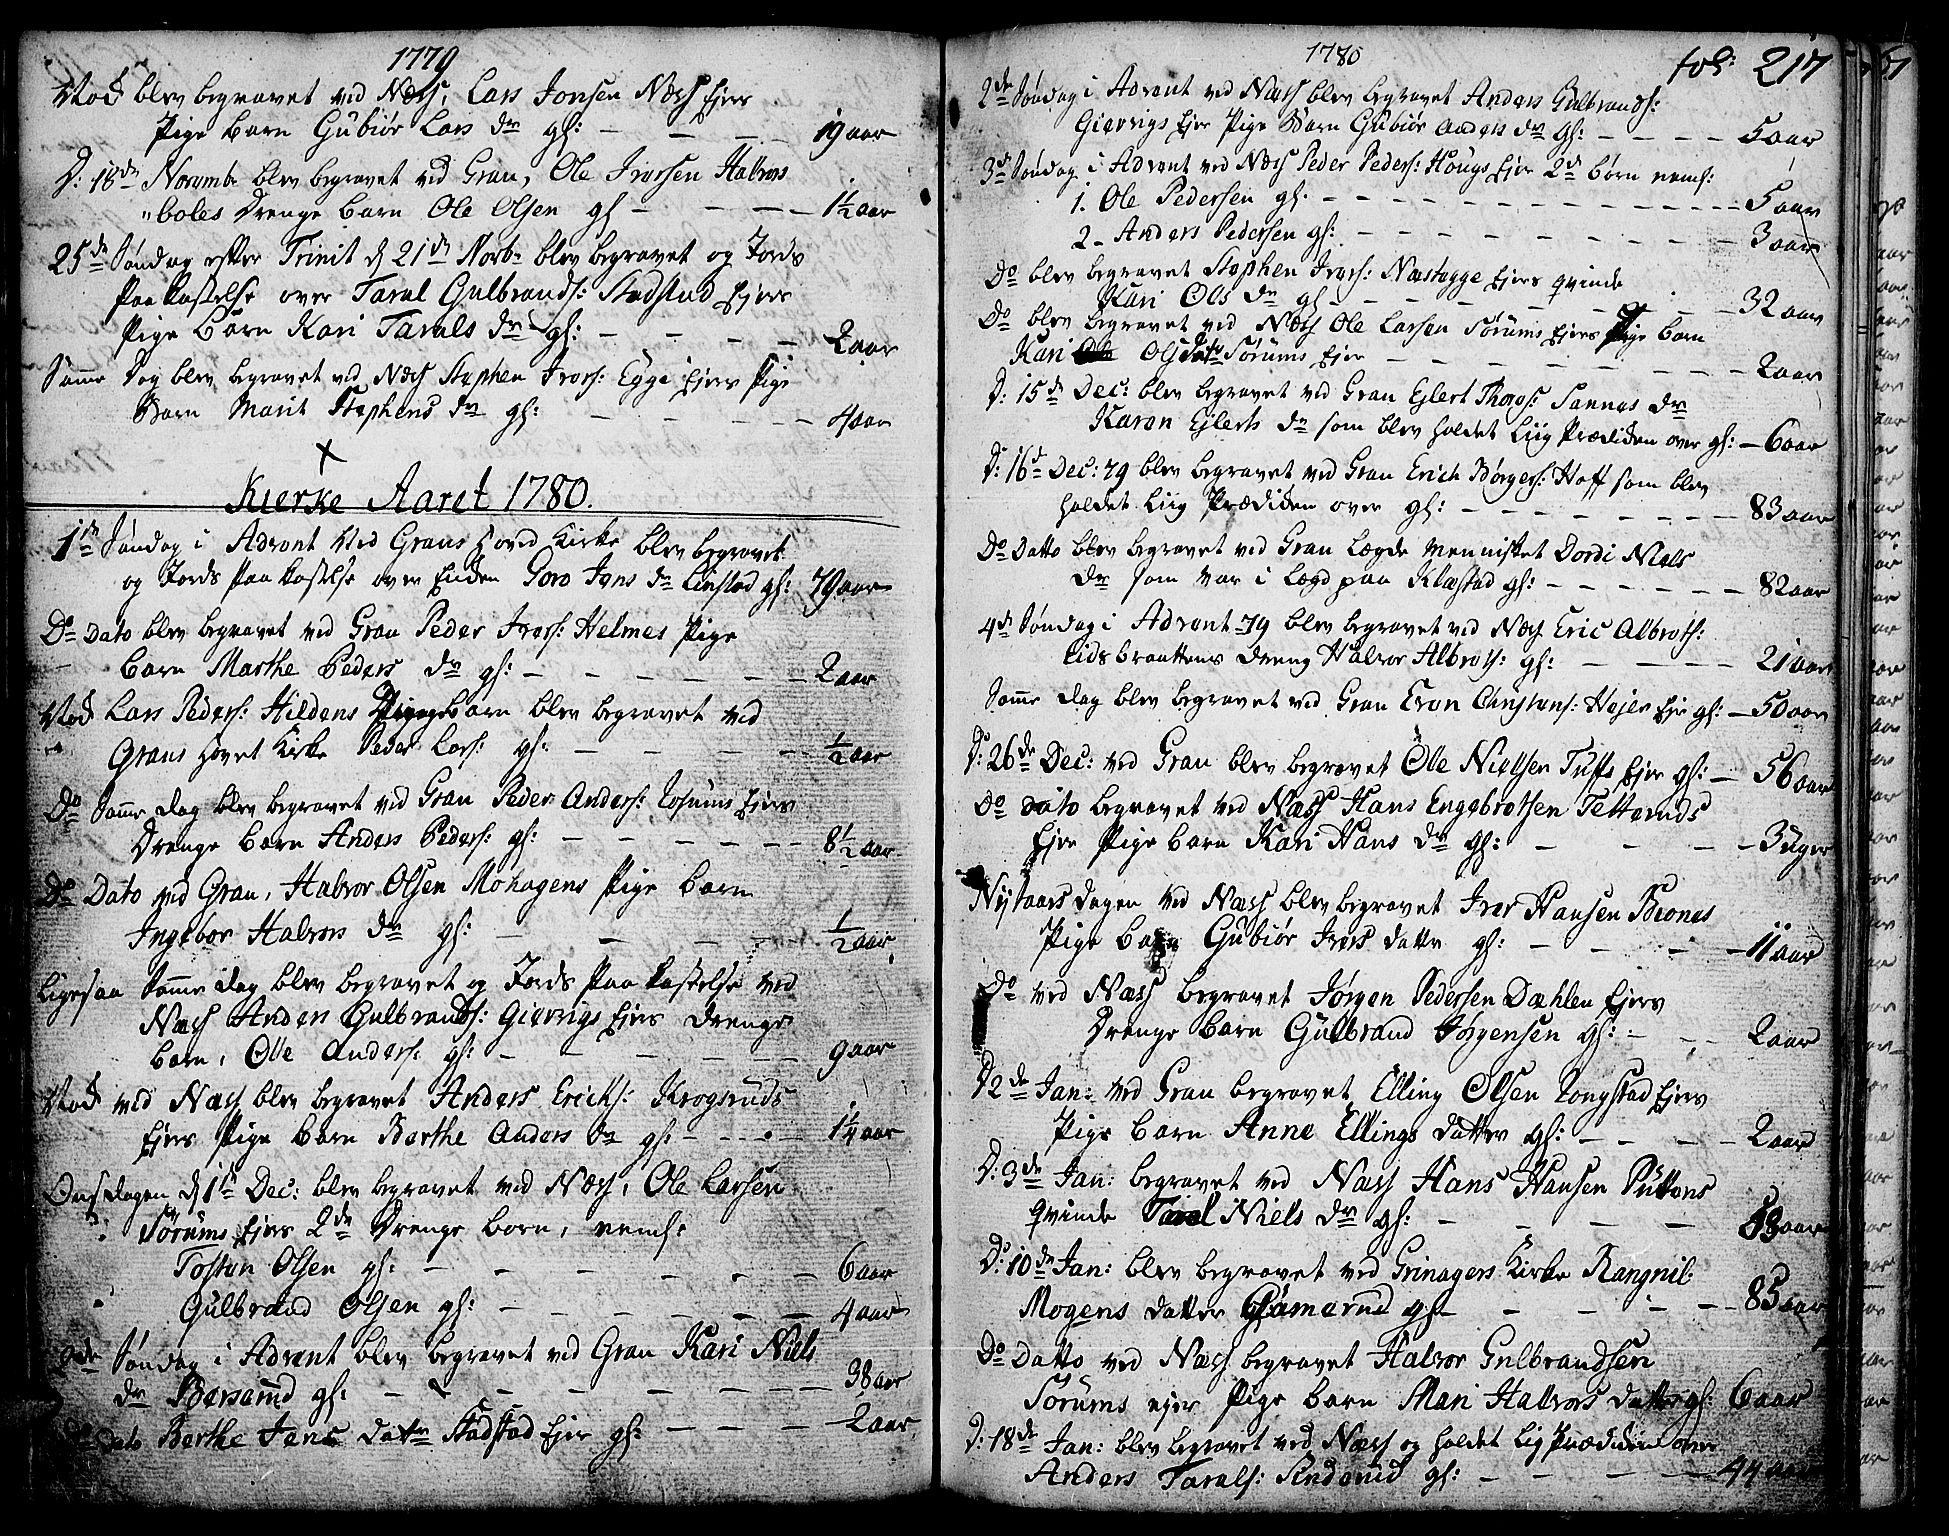 1779
Nok blev begravet ved Næss, Lars Jonsen Næss Ejers
Pige barn Gubiør Lars dr gl: — — — 19 aar
D: 18de Novembr blev begravet ved Gran, Ole Iversen Halvors
"boles Drenge barn Ole Olsen gl — — — 1½ aar
25de Søndag efter Trinit d 21de Novbr blev begravet og Jords
Paakastelse over Taral Gulbrands: Stadstad Ejers
Pige Barn Kari Tarals dr gl: — — — 2 aar
Samme Dag blev begravet ved Næss Stephen Ivers: Egge Ejers Pige
Barn Marit Stephens dr gl: — — — 4 aar
Kierke Aaret 1780.
1ste Søndag i Advent ved Grans Hoved Kirke blev begravet
og Jords Paakastelse over Enken Goro Jens dr Linstad gl: 79 aar
Do Dato blev begravet ved Gran Peder Ivers: Helmes Pige
barn Marthe Peders dr gl: — — — 2 aar
Nok Lars Peders: Hildens barn blev begravet ved
Grans Hovet Kirke Peder Lars: gl: — — — ½ aar
Do Samme dag blev begravet ved Gran Peder Anders: Josums Ejers
Drenge barn Anders Peders: gl: — — — 8½ aar
Do Dato ved Gran, Halvor Olsen Mohagens Pige barn
Ingebor Halvors dr gl: — — — ½ aar
Ligesaa Samme dag blev begravet og Jords Paakastelse ved
Næss Anders Gulbrands: Gievrigs Ejers Drenge
barn, Ole Anders: gl: — — — 9 aar
Nok ved Næss blev begravet Anders Ericks: Krogsruds
Ejers Pige barn Berthe Anders dr gl: — — — 1¼ aar
Onsdagen d 1ste Dec: blev begravet ved Næss, Ole Larsen
Sørums Ejers 2de Drenge børn, neml:
Tosten Olsen gl: — — — 6 aar
Gulbrand Olsen gl: — — — 4 aar
2de Søndag i Advent blev begravet ved Gran Kari Niels
dr Bersrud gl: — — — 38 aar
Do Dato Berthe Jens Dattr Stadstad Ejer gl: — — — 2 aar
1780
fol: 217
2de Søndag i Advent ved Næss blev begravet Anders Gulbrands:
Gievrigs Ejer Pige Barn Gubiør Anders dr gl: — — — 5 aar
3de Søndag i Advent ved Næss Peder Peders: Hougs Ejer 2de børn neml:
1. Ole Pedersen gl. — — — 5 aar
2 - Anders Pedersen gl: — — — 3 aar
Do blev begravet Stephen Ivers: Næsseygge Ejers qvinde
Kari Ols dr gl — — — 32 aar
Do blev begravet ved Næss Ole Larsen Sørums Ejers Pige barn
Kari Olsdatr Sørums Ejer — — — 2 aar
D: 15de Dec: blev begravet ved Gran Ejlert Thors: Sannes dr
Karen Ejlerts dr som blev holdet Liig Prædiken over gl: — 6 aar
D: 16d Dec: 79 blev begravet ved Gran Erich Børgers: Hoff som blev
holdet Liig Prædiken over gl: — — — 83 aar
Do Datto blev begravet ved Gran Lægde Mennisket Dordi Niels
dr som var i Lægd paa Klæstad gl: — — — 82 aar
4de Søndag i Advent 79 blev begravet ved Næss Eric Albrets:
Eidsbraattens Dreng Halvor Albrets: gl: — — — 21 aar
Samme dag blev begravet ved Gran Even Christens: Hejer Ejer gl: — 50 aar
D: 26de Dec: ved Gran blev begravet Ole Nielsen Tuffs Ejer gl: — 56 aar
Do Dato begravet ved Næss Hans Engebretsen Tetteruds
Ejer Pige barn Kari Hans dr gl: — — — 3 uger
Nytaars Dagen ved Næss blev begravet Iver Hansen Beones
Pige barn Gubiør Ivers datter gl: — — — 11 aar
Do ved Næss begravet Jørgen Pedersen Dæhlen Ejers
Drenge barn Gulbrand Jørgensen gl: — — — 2 aar
D 2de Jan: ved Gran begravet Elling Olsen Longstad Ejers
Pige barn Anne Ellings datter gl: — — — 2 aar
D: 3de Jan: begravet ved Næss Hans Hansen Puttens
qvinde Taral Niels dr gl: — — — 59 aar
D: 10de Jan: blev begravet ved Grinagers Kirke Rangnil
Mogens datter Gamerud gl — — — 85 aar
Do Datto ved Næss begravet Halvor Gulbrandsen
Sørums ejer Pige barn Mari Halvors datter gl: 6 aar
D: 18de Jan: blev begravet ved Næss og holdet Lig Prædiken over
Anders Tarals: Sinderud gl: — — — 44 aar